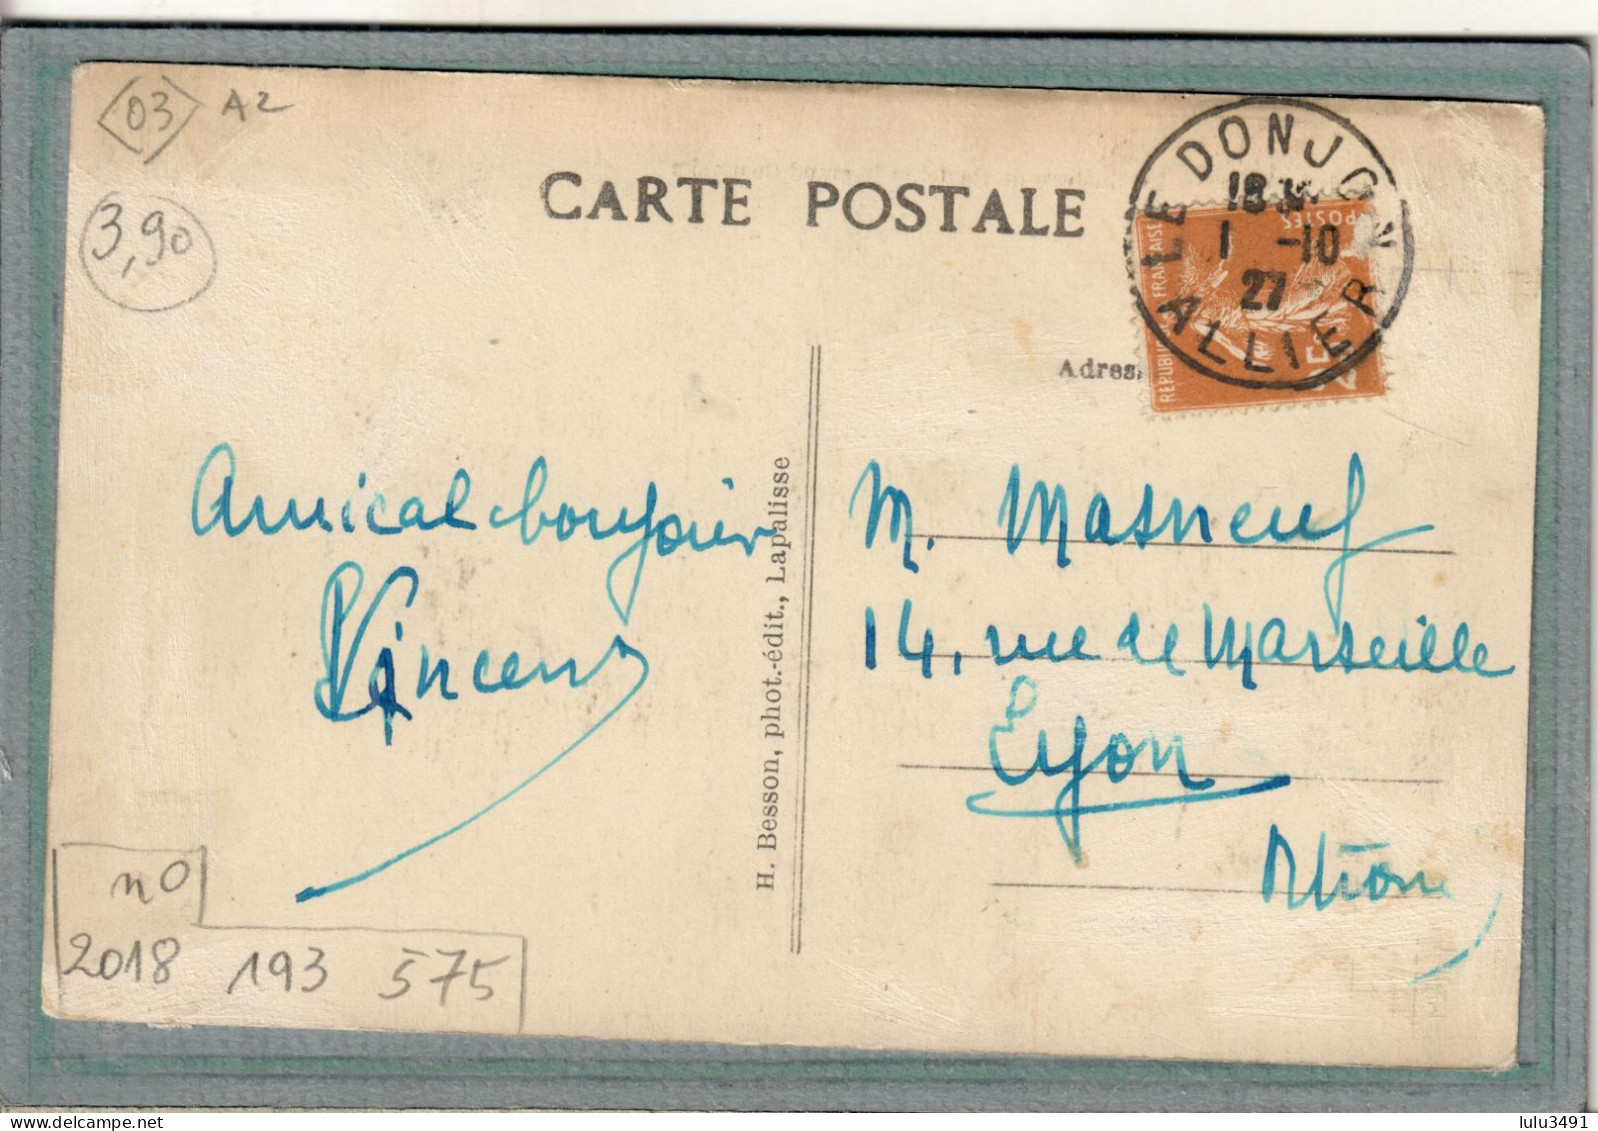 03 A2
3,90
CARTE POSTALE
LE DONJON
18
1 -10
27
ALLIER
POSTES
REPUBLIQUE FRANÇAISE
25
Adres
Amical bonjour
Vincent
H. Besson, phot.-édit., Lapalisse
M. Masneuf
14, rue de Marseille
Lyon
Rhône
no
2018 193 575
lulu3491